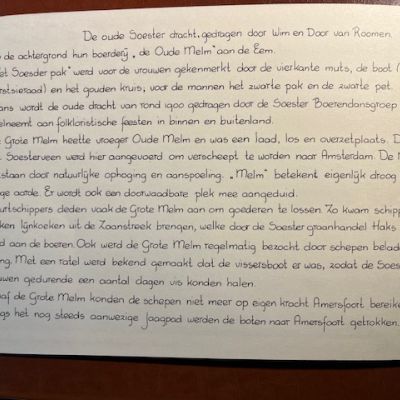 De oude Soester dracht, gedragen door Wim en Door van Roomen.
de achtergrond hun boerderij „de Oude Melm" aan de Eem.
et Soesder pak" werd voor de vrouwen gekenmerkt door de vierkante muts, de boot (
rstsieraad) en het gouden kruis; voor de mannen het zwarte pak en de zwarte pet.
ans wordt de oude dracht van rond 1900 gedragen door de Soester Boerendansgroep
elneemt aan folkloristische feesten in binnen en buitenland.
Grote Melm heette vroeger Oude Melm en was een laad, los en overzetplaats. D
Soesterveen werd hier aangevoerd om verscheept te worden naar Amsterdam. De M
staan door natuurlijke ophoging en aanspoeling. „Melm" betekent eigenlijk droog
ge aarde. Er wordt ook een doorwaadbare plek mee aangeduid.
urtschippers deden vaak de Grote Melm aan om goederen te lossen. Zo kwam schipp
ken lijnkoeken uit de Zaanstreek brengen, welke door de Soester graanhandel Haks
d aan de boeren. Ook werd de Grote Melm regelmatig bezocht door schepen belad
ng. Met een ratel werd bekend gemaakt dat de vissersboot er was, zodat de Soes
uwen gedurende een aantal dagen vis konden halen.
af de Grote Melm konden de schepen niet meer op eigen kracht Amersfoort bereike
gs het nog steeds aanwezige jaagpad werden de boten naar Amersfoort getrokken.